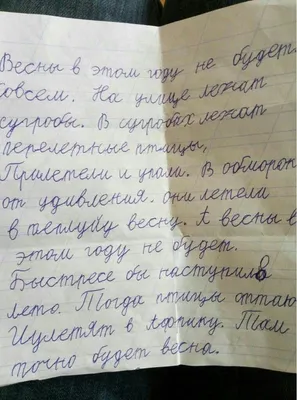 Весны в этом году не будет
совсем. На улице лежат
сугробы. В сугробах лежат
перелетные птицы,
Прилетели и упали. В обморок
от удивления. они летели
в теплую весну. А весны в
этом году не будет.
Быстресе бы наступило
лето. Тогда птицы оттаю
И улетят в Африку. Там
точно будет весна.